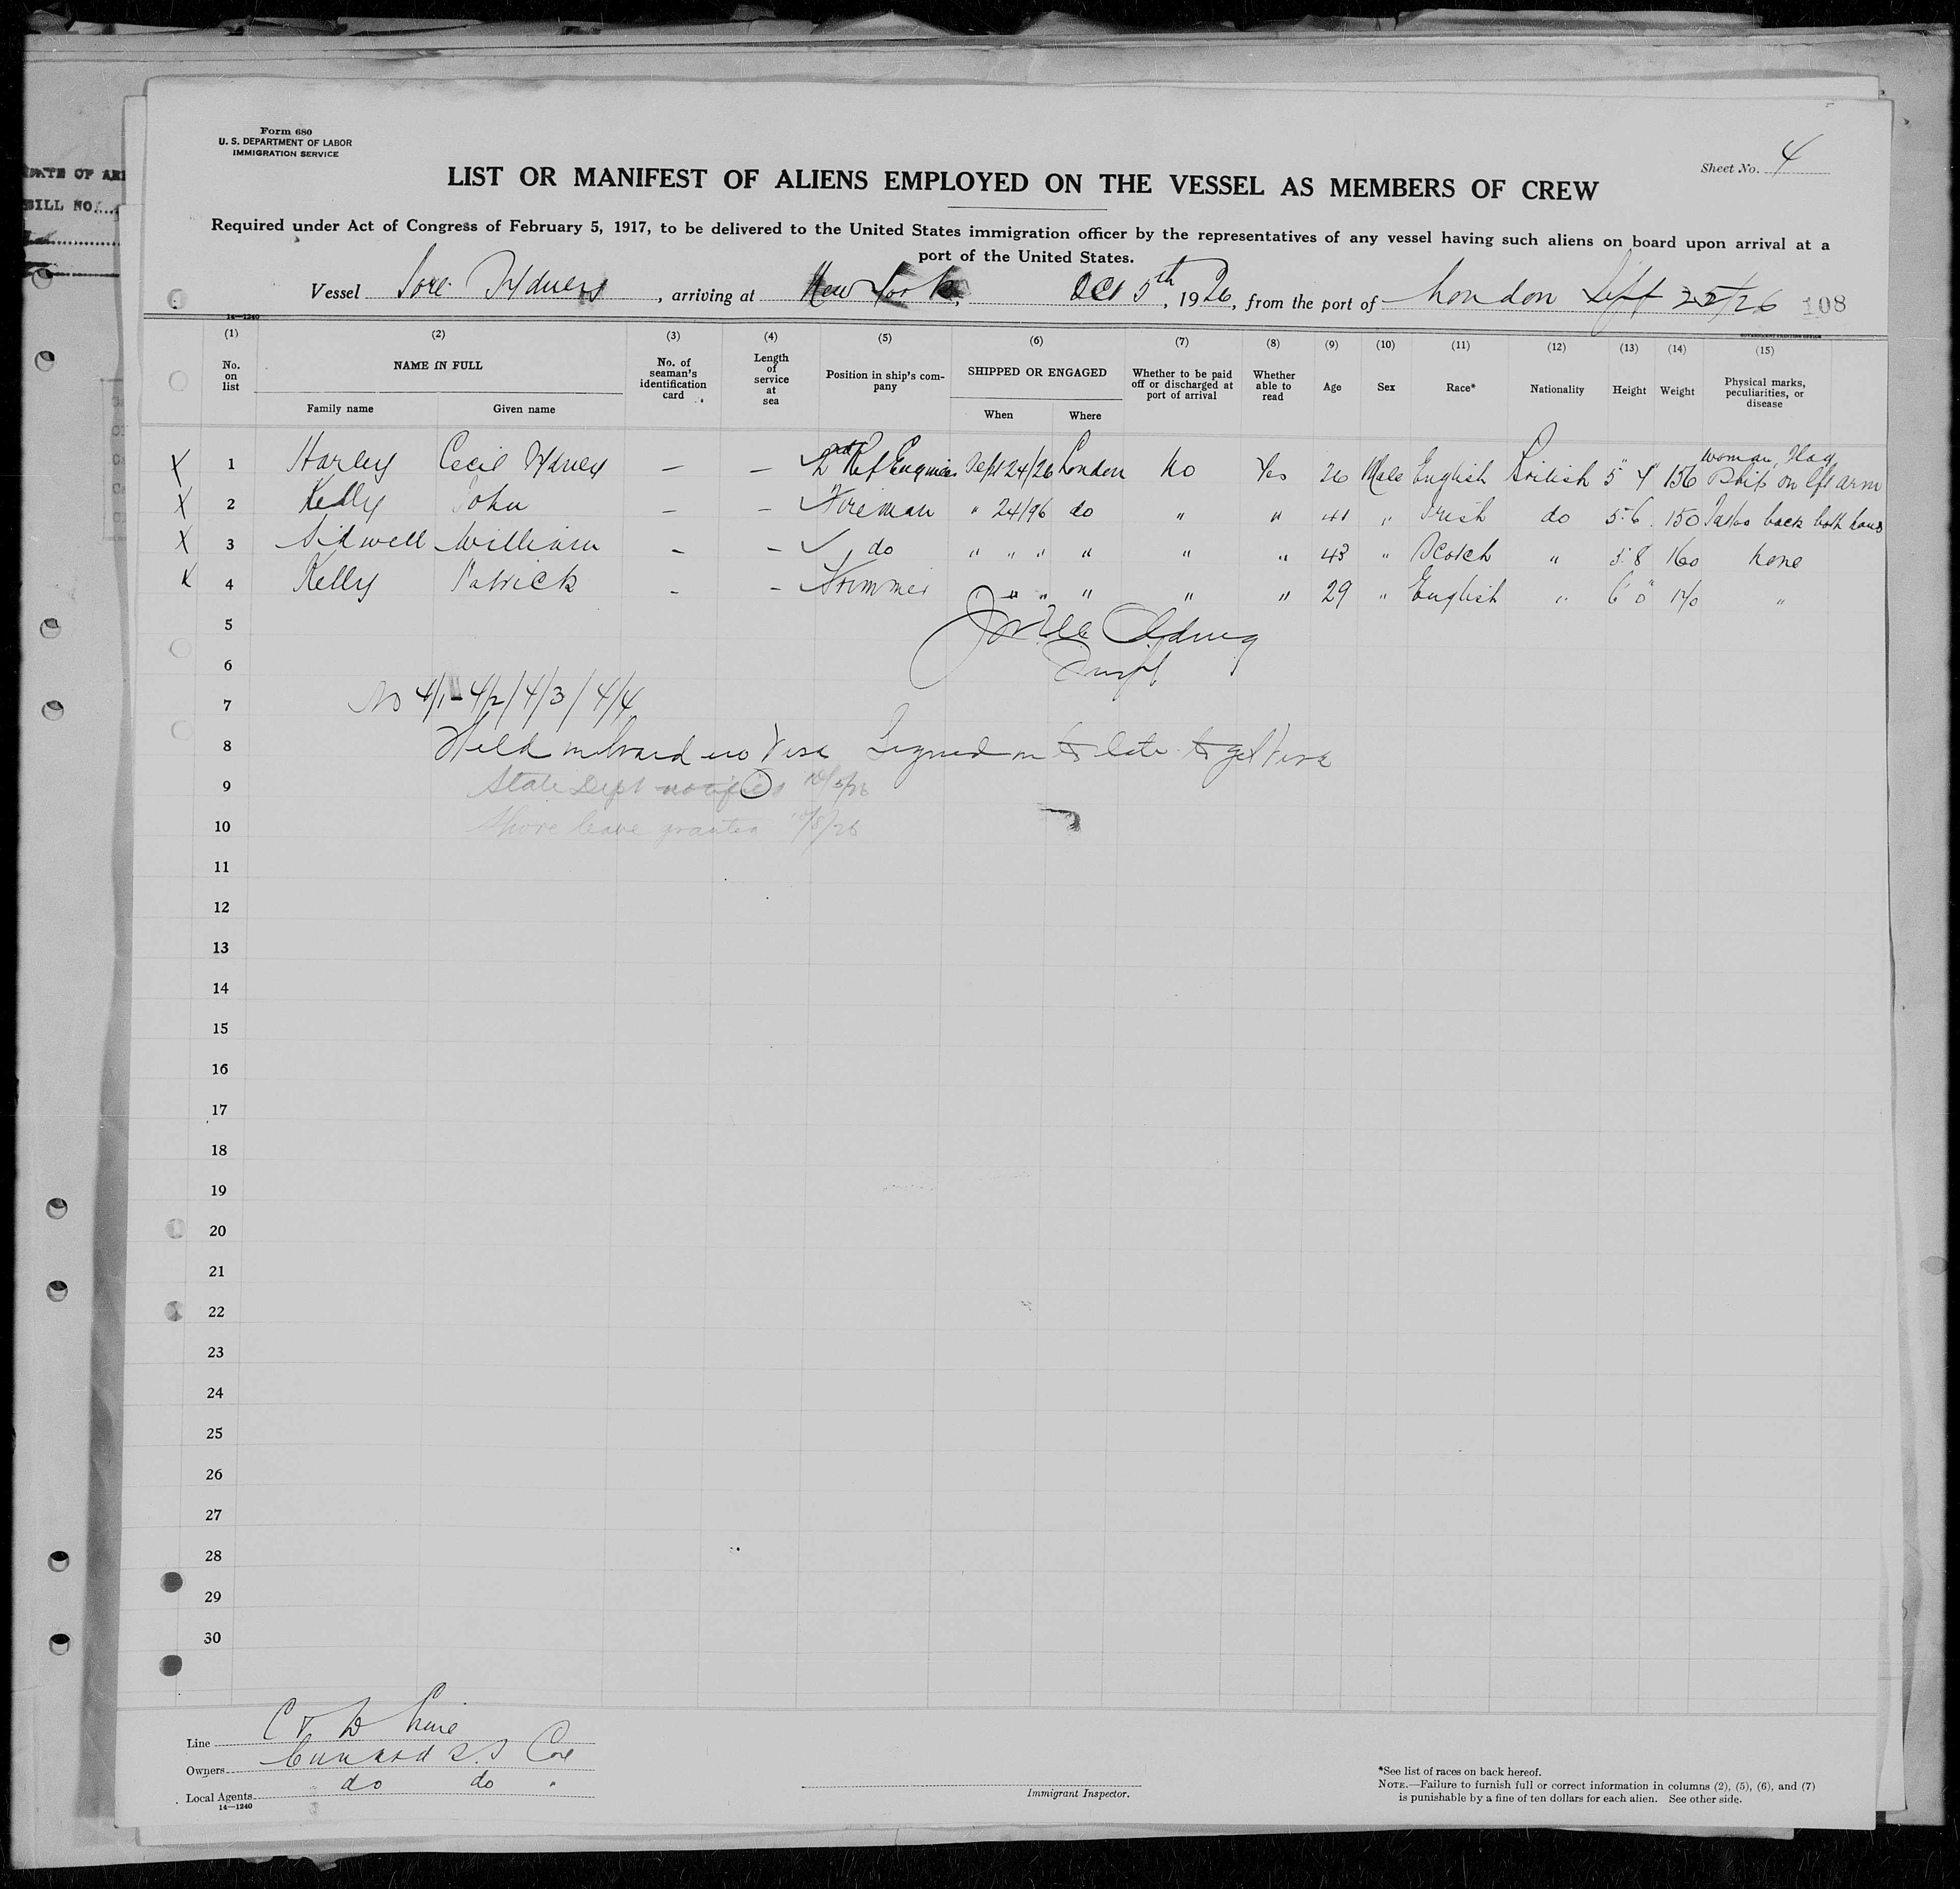 DATE OF ARR
BILL NO.
Form 680
U. S. DEPARTMENT OF LABOR
IMMIGRATION SERVICE
Sheet No. 4
LIST OR MANIFEST OF ALIENS EMPLOYED ON THE VESSEL AS MEMBERS OF CREW
Required under Act of Congress of February 5, 1917, to be delivered to the United States immigration officer by the representatives of any vessel having such aliens on board upon arrival at a
port of the United States.
Vessel , arriving at New York, Oct 5th, 1926, from the port of London Sept 25/26 108
14—1240
GOVERNMENT PRINTING OFFICE
(1) (2) (3) (4) (5) (6) (7) (8) (9) (10) (11) (12) (13) (14) (15)
No. on list NAME IN FULL Family name Given name No. of seaman's identification card Length of service at sea Position in ship's company SHIPPED OR ENGAGED When Where Whether to be paid off or discharged at port of arrival Whether able to read Age Sex Race* Nationality Height Weight Physical marks, peculiarities, or disease
X 1 Harley Cecil Sydney — — 2nd Ref Engineer Sept 24/26 London No Yes 26 Male English British 5" 4" 156 woman, Flag Ship on lft arm
X 2 Kelly John — — Fireman " 24/26 do " " 41 " Irish do 5.6 150 back both hands
X 3 Sidwell William – – ✓ do " " " " " " 43 " Scotch " 5.8 160 None
X 4 Kelly Patrick - – Trimmer " " " " " 29 " English " 6"0" 170 "
5
6
7 No 4/1 - 4/2 / 4/3 / 4/4
8 Held on board no Visa Signed on to late to get Visa
9 State Dept notified 10/5/26
10 Shore leave granted 10/5/26
11
12
13
14
15
16
17
18
19
20
21
22
23
24
25
26
27
28
29
30
Line C & D Line
Owners Cunard S.S Co
Local Agents do do "
14—1240
Immigrant Inspector.
*See list of races on back hereof.
NOTE.—Failure to furnish full or correct information in columns (2), (5), (6), and (7)
is punishable by a fine of ten dollars for each alien. See other side.